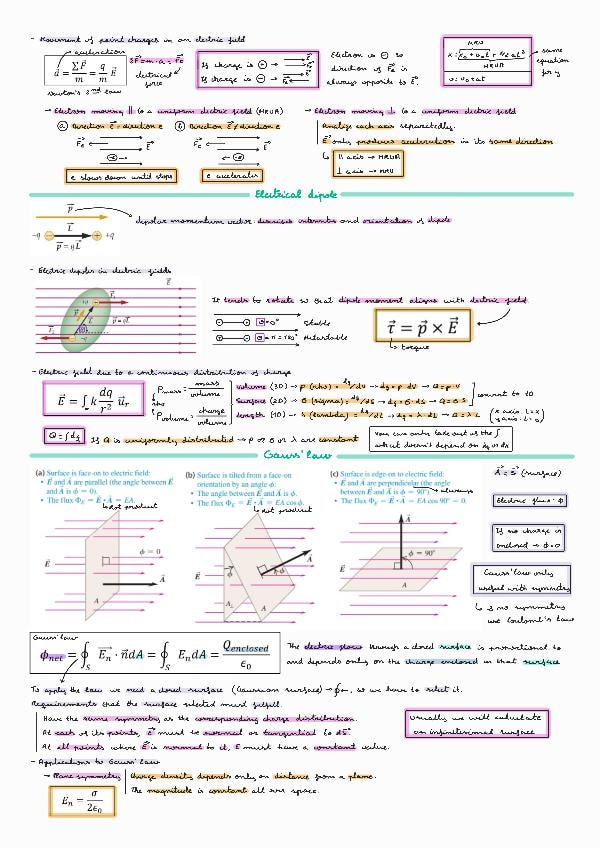 - Movement of point charges in an electric field
acceleration
a = ΣF/m = q/m E
ΣF = m·a = Fe
electrical force
Newton's 2nd law
If charge is ⊕ → E Fe
If charge is ⊖ → E Fe
Electron is ⊖ so
direction of Fe is
always opposite to E.
MRU
MRUA
v = v₀ + at
same
equation
for y
→ Electron moving ∥ to a uniform electric field (MRUA)
→ Electron moving ⊥ to a uniform electric field
ⓐ Direction E = direction e
ⓑ Direction E ≠ direction e
Fe E
Fe E
e slows down until stops
e accelerates
Analyze each axis separetedly.
E only produces acceleration in its same direction
∥ axis → MRUA
⊥ axis → MRU
Electrical dipole
p
L
-q ⊖ ⊕ +q
p = qL
dipolar momentum vector: describes intensity and orientation of dipole
- Electric dipoles in electric fields
E
+q
p = qL
-q
It tends to rotate so that dipole moment aligns with electric field
Θ = 0° Stable
τ = p × E
torque
- Electric field due to a continuous distribution of charge
E = ∫ k dq/r² u_r
ρ mass = mass/volume
ρ volume = charge/volume
Volume (3D) → ρ (rho) = dq/dV → dq = ρ·dV → Q = ρ·V
Surface (2D) → σ (sigma) = dq/dS → dq = σ·dS → Q = σ·S
Length (1D) → λ (lambda) = dq/dL → dq = λ·dL → Q = λ·L
convert to 1D
x axis: L = x
y axis: L = y
Q = ∫dq
If Q is uniformly distributed → ρ or σ or λ are constant
You can only take out of the ∫
what doesn't depend on dq or dx
Gauss' law
(a) Surface is face-on to electric field:
• E and A are parallel (the angle between E
and A is ϕ = 0).
• The flux Φ_E = E · A = EA.
dot product
ϕ = 0
E
A
A
(b) Surface is tilted from a face-on
orientation by an angle ϕ:
• The angle between E and A is ϕ.
• The flux Φ_E = E · A = EA cos ϕ.
dot product
A
E
ϕ
A⊥
A
(c) Surface is edge-on to electric field:
• E and A are perpendicular (the angle
between E and A is ϕ = 90°).
always
• The flux Φ_E = E · A = EA cos 90° = 0.
A
ϕ = 90°
E
A
A = S (surface)
Electric flux: ϕ
If no charge is
enclosed → ϕ = 0
Gauss' law only
useful with symmetry
if no symmetry
use Coulomb's Law
Gauss' law
ϕ_net = ∮_S E_n · n dA = ∮_S E_n dA = Q_enclosed/ϵ₀
The electric flow through a closed surface is proportional to
and depends only on the charge enclosed in that surface
To apply the law we need a closed surface (Gaussian surface) → ∮, so we have to select it.
Requirements that the surface selected must fulfill:
Have the same symmetry as the corresponding charge distribution.
At each of its points, E must be normal or tangential to dS
At all points where E is normal to it, E must have a constant value.
Usually we will calculate
an infinitesimal surface
- Applications to Gauss' law
→ Plane symmetry
Charge density depends only on distance from a plane.
The magnitude is constant all over space.
E_n = σ/2ϵ₀